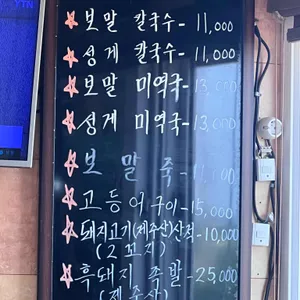 보말 칼국수 - 11,000
성게 칼국수 - 11,000
보말 미역국 - 13,000
성게 미역국 - 13,000
보말죽 -
고등어구이 - 15,000
돼지고기(제주산)산적 - 10,000
(2꼬지)
흑돼지 족발 - 25,000
(제주산)